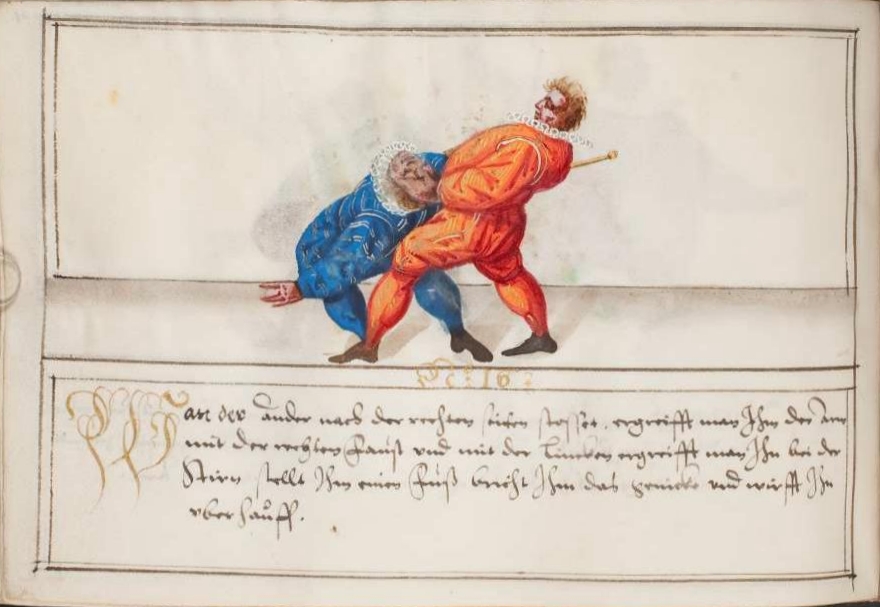 N: 16:
Wan der ander nach der rechten seiten stosset, ergreifft man Ihm den Arm
mit der rechten Faust vnd mit der Lincken ergreifft man Ihn bei der
Stirn stellt Ihm einen Fuß bricht Ihm das genicke vnd wirfft Ihn
vber hauff.